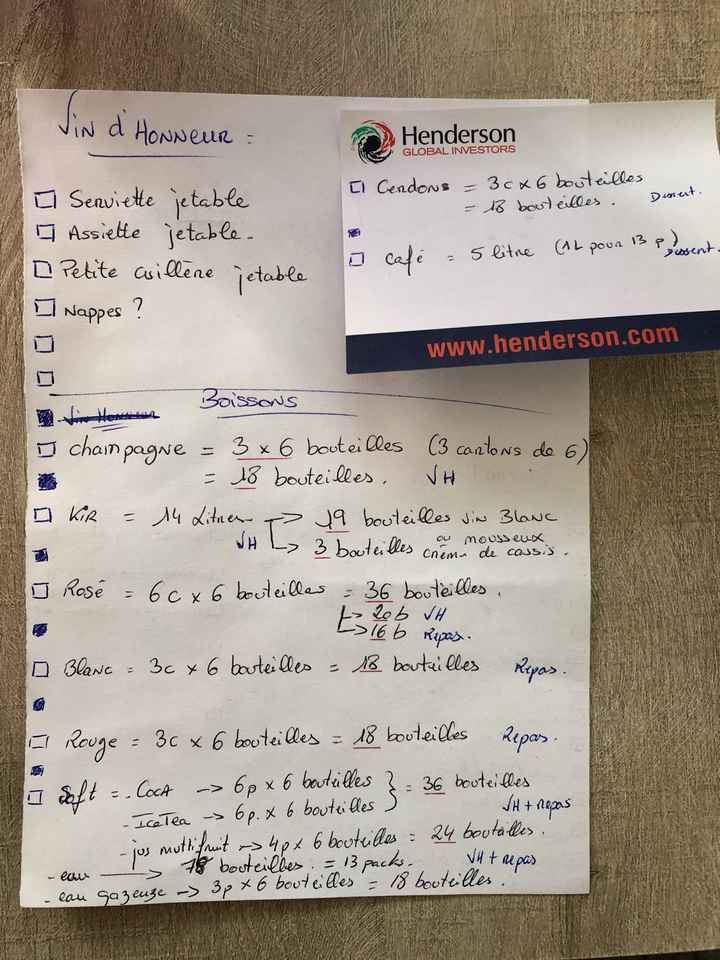 Vin d'Honneur =
□ Serviette jetable
□ Assiette jetable.
□ Petite cuillère jetable
□ Nappes ?
□
□
Boissons
□ champagne = 3 x 6 bouteilles (3 cartons de 6)
= 18 bouteilles. VH
□ KIR = 14 Litres → 19 bouteilles Vin Blanc
ou mousseux
VH → 3 bouteilles crème de cassis.
□ Rosé = 6c x 6 bouteilles = 36 bouteilles.
→ 20b VH
→ 16b Repas.
□ Blanc = 3c x 6 bouteilles = 18 bouteilles Repas.
□ Rouge = 3c x 6 bouteilles = 18 bouteilles Repas.
□ Soft = - CocA → 6p x 6 bouteilles } = 36 bouteilles
- IceTea → 6p. x 6 bouteilles VH + repas
- jus multifruit → 4p x 6 bouteilles = 24 bouteilles.
- eau → 78 bouteilles. = 13 packs. VH + repas
- eau gazeuse → 3p x 6 bouteilles = 18 bouteilles.
Henderson
GLOBAL INVESTORS
□ Cerdons = 3c x 6 bouteilles
= 18 bouteilles. Dessert.
□ café = 5 litre (1L pour 13 p) Dessert.
www.henderson.com